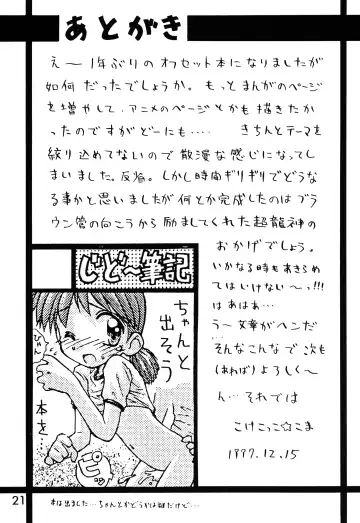 あとがき
え〜1年ぶりのオフセット本になりましたが
如何だったでしょうか。もっとまんがのページ
を増やして、アニメのページとかも描きたか
ったのですがどーにも‥‥ きちんとテーマを
絞り込めてないので散漫な感じになってし
まいました。反省。しかし時間ギリギリでどうな
る事かと思いましたが何とか完成したのはブラ
ウン管の向こうから励ましてくれた超龍神の
おかげでしょう。
いかなる時もあきらめ
てはいけない〜っ!!!
はあはあ…
う〜文章がヘンだ…
そんなこんなで次も
(あれば)よろしく〜
ん…それでは
こけこっこ☆こま
1997.12.15
じど〜筆記
ちゃんと
出そう
本を…
ピッ
21
本は出ました…ちゃんとかどうかは謎だけど…